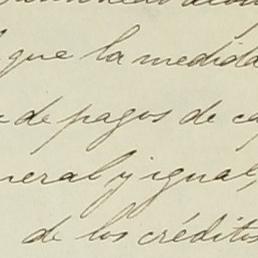 que la medida
de pagos de ca
neral y igual,
de los créditos